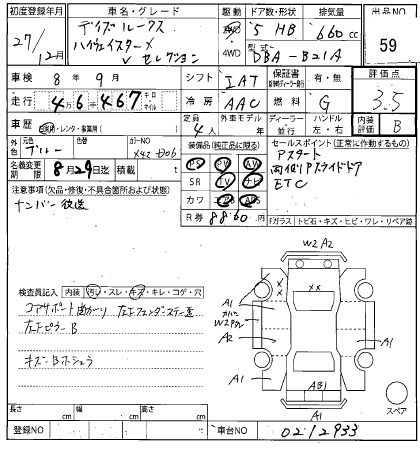 初度登録年月 車名・グレード 駆動 ドア数・形状 排気量 出品NO
27/12月 デイズルークス 2WD 5 HB 660cc 59
ハイウェイスターX Vセレクション 4WD 型式 DBA-B21A
車検 8年9月 シフト IAT 保証書 有・無 評価点
走行 4万6千467 キロ マイル 冷房 AAC 燃料 G 3.5
車歴 自家用・レンタ・事業用( ) 定員 4人 外車モデル 年 ディーラー 並行 ハンドル 左・右 内装評価 B
外色 元色 ブルー 色替 カラーNO
装備品(純正品に限る) セールスポイント(正常に作動するもの)
PS PW AW Pスタート
名義変更期限 8月29日迄 積載 t SR TV ナビ 両側Pスライドドア
注意事項(欠品・修復・不具合箇所および状態) カワ ABS ETC
ナンバー後送 R券 8860円
Fガラス・トビ石・キズ・ヒビ・ワレ・リペア跡
W2 A2
検査員記入 内装 汚れ・スレ・キズ・キレ・コゲ・穴
コアサポート曲がり 左Fフェンダーステー歪
左FピラーB
キズ・Bホシュウ
XX
X
A1
A1
カバー
W2
A2
A1
A1
AB1
A1
スペア
長さ cm 幅 cm 高さ cm
登録NO 車台NO 0212933